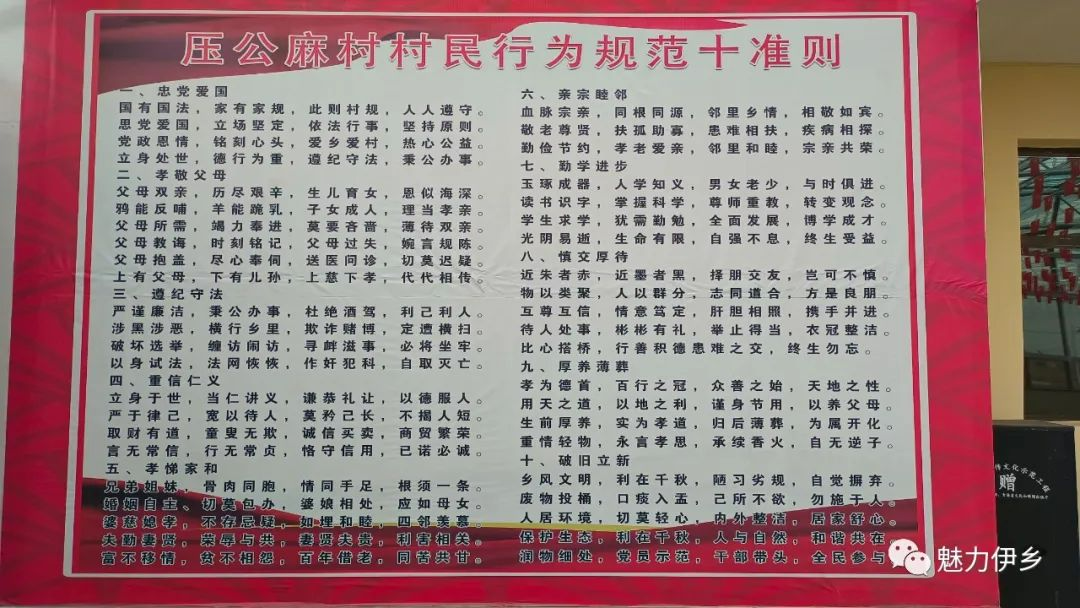 压公麻村村民行为规范十准则
一、忠党爱国
国有国法，家有家规，此则村规，人人遵守。
思党爱国，立场坚定，依法行事，坚持原则。
党政恩情，铭刻心头，爱乡爱村，热心公益。
立身处世，德行为重，遵纪守法，秉公办事。
二、孝敬父母
父母双亲，历尽艰辛，生儿育女，恩似海深。
鸦能反哺，羊能跪乳，子女成人，理当孝亲。
父母所需，竭力奉进，莫要吝啬，薄待双亲。
父母教诲，时刻铭记，父母过失，婉言规陈。
父母抱恙，尽心奉伺，送医问诊，切莫迟疑。
上有父母，下有儿孙，上慈下孝，代代相传。
三、遵纪守法
严谨廉洁，秉公办事，杜绝酒驾，利己利人。
涉黑涉恶，横行乡里，欺诈赌博，定遭横扫。
破坏选举，缠访闹访，寻衅滋事，必将坐牢。
以身试法，法网恢恢，作奸犯科，自取灭亡。
四、重信仁义
立身于世，当仁讲义，谦恭礼让，以德服人。
严于律己，宽以待人，莫矜己长，不揭人短。
取财有道，童叟无欺，诚信买卖，商贸繁荣。
言无常信，行无常贞，恪守信用，已诺必诚。
五、孝悌家和
兄弟姐妹，骨肉同胞，情同手足，根须一条。
婚姻自主、切莫包办，婆娘相处，应如母女。
婆慈媳孝，不存忌疑，如埋和睦，四邻羡慕。
夫勤妻贤，荣辱与共，妻贤夫贵，利害相关。
富不移情，贫不相怨，百年借老，同苦共甘。
六、亲宗睦邻
血脉宗亲，同根同源，邻里乡情，相敬如宾。
敬老尊贤，扶孤助寡，患难相扶，疾病相探。
勤俭节约，孝老爱亲，邻里和睦，宗亲共荣。
七、勤学进步
玉琢成器，人学知义，男女老少，与时俱进。
读书识字，掌握科学，尊师重教，转变观念。
学生求学，犹需勤勉，全面发展，博学成才。
光阴易逝，生命有限，自强不息，终生受益。
八、慎交厚待
近朱者赤，近墨者黑，择朋交友，岂可不慎。
物以类聚，人以群分，志同道合，方是良朋。
互尊互信，情意笃定，肝胆相照，携手并进。
待人处事，彬彬有礼，举止得当，衣冠整洁。
比心搭桥，行善积德患难之交，终生勿忘。
九、厚养薄葬
孝为德首，百行之冠，众善之始，天地之性。
用天之道，以地之利，谨身节用，以养父母。
生前厚养，实为孝道，归后薄葬，为属开化。
重情轻物，永言孝思，承续香火，自无逆子。
十、破旧立新
乡风文明，利在千秋，陋习劣规，自觉摒弃。
废物投桶，口痰入盂，己所不欲，勿施于人。
人居环境，切莫轻心，内外整洁，居家舒心。
保护生态，利在千秋，人与自然，和谐共在。
润物细处，党员示范，干部带头，全民参与
文化示范工程
赠
魅力伊乡